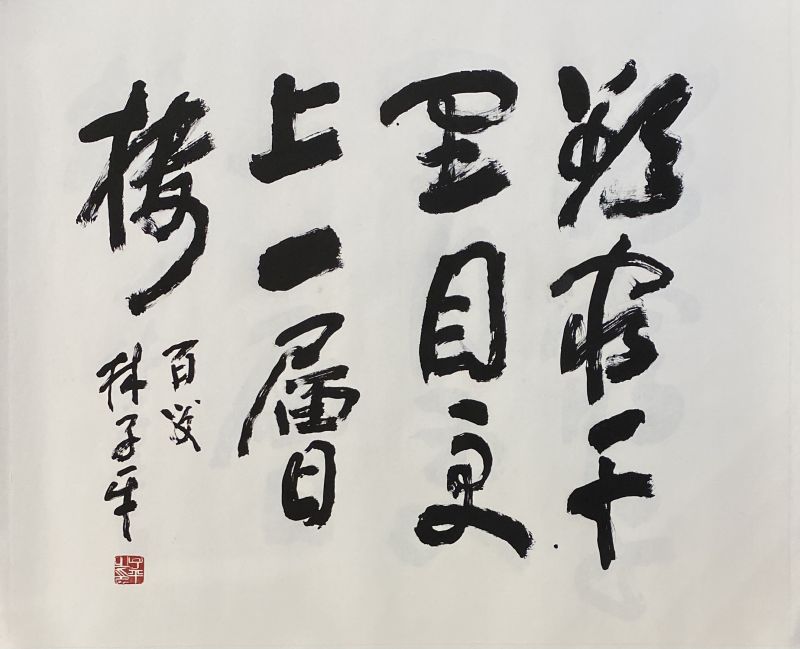 欲窮千
里目更
上一層
樓
百歲
林子平